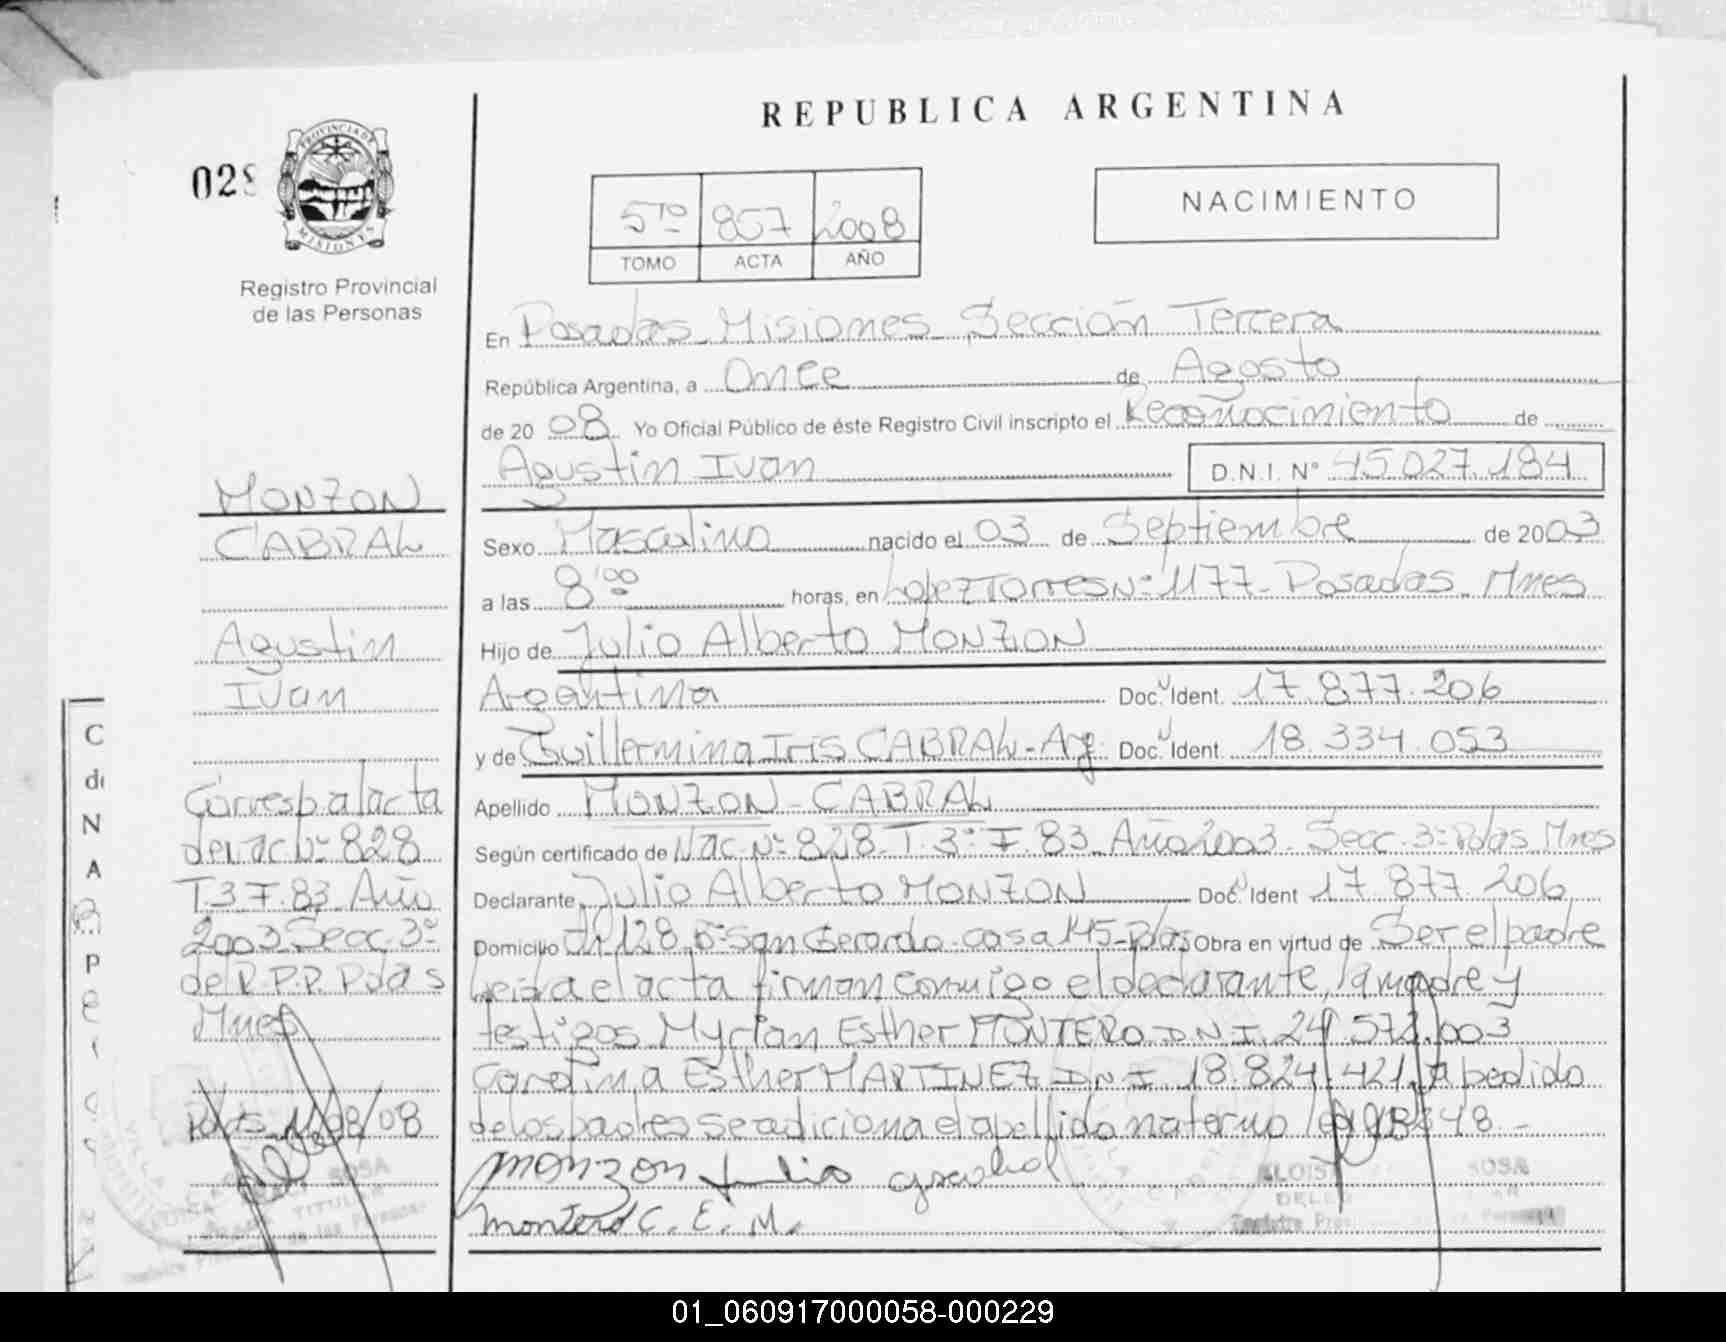 REPUBLICA ARGENTINA
028
PROVINCIA DE
MISIONES
Registro Provincial
de las Personas
5TO 857 2008
TOMO ACTA AÑO
NACIMIENTO
En Posadas Misiones Sección Tercera
República Argentina, a Once de Agosto
de 2008 Yo Oficial Público de éste Registro Civil inscripto el Reconocimiento de
Agustin Ivan D.N.I. N° 45.027.184
Sexo Masculino nacido el 03 de Septiembre de 2003
a las 8:00 horas, en Lopez Torres N° 1177 - Posadas Mnes
Hijo de Julio Alberto MONZON
Argentina Doc. Ident. 17.877.206
y de Guillermina Iris CABRAL - Arg. Doc. Ident. 18.334.053
Apellido MONZON - CABRAL
Según certificado de Nac. N° 828 T. 3° F. 83 Año 2003 Secc. 3° Pdas Mnes
Declarante Julio Alberto MONZON Doc. Ident 17.877.206
Domicilio 128 B° San Gerardo casa 145 - Pdas Obra en virtud de Ser el padre
Leida el acta firman conmigo el declarante, la madre y
testigos Myrian Esther MONTERO D.N.I. 24.572.003
Carolina Esther MARTINEZ D.N.I. 18.824.421 A pedido
de los padres se adiciona el apellido materno
monzon julio
montero C. E. M.
MONZON
CABRAL
Agustin
Ivan
Corresp. al acta
de nac N° 828
T. 3 F. 83 Año
2003 Secc. 3°
del R.P.P. Pdas
Mnes
Pdas 11/08/08
SOSA
TITULAR
SOSA
01_060917000058-000229